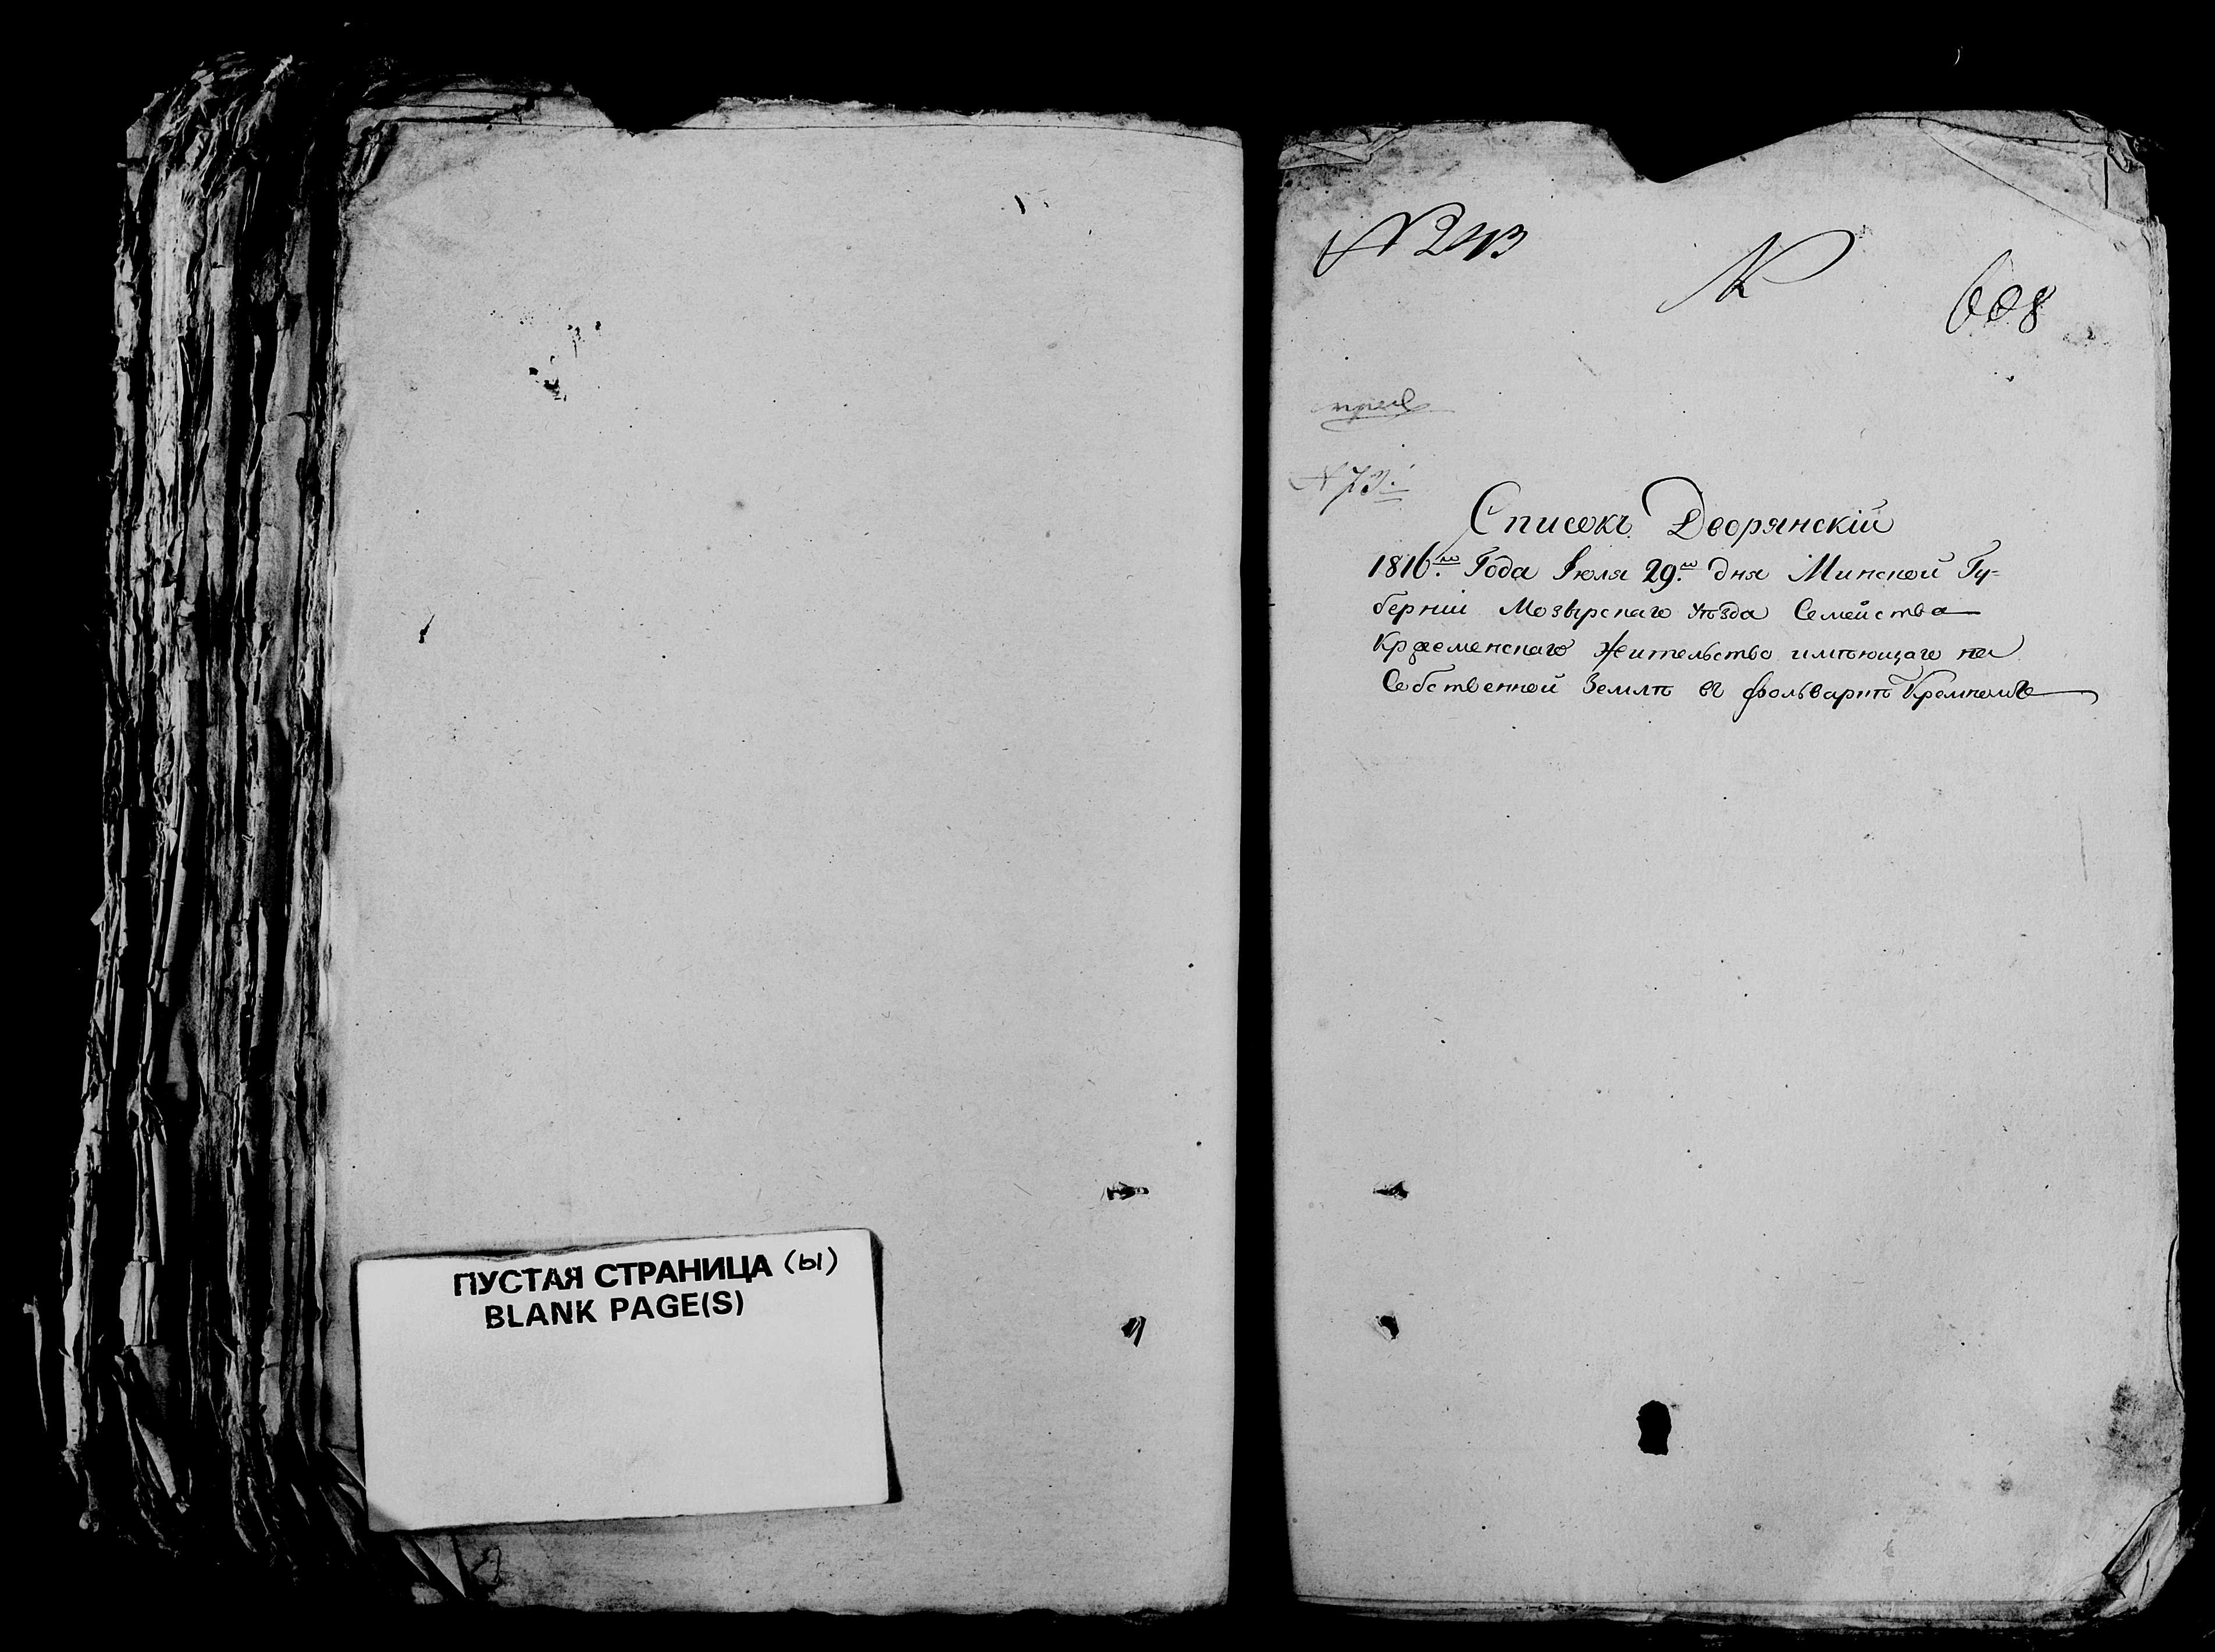 ПУСТАЯ СТРАНИЦА (ы)
BLANK PAGE(S)
№ 243
№
608
№ 73.
Списокъ Дворянскій
1816.го Года Іюля 29.го дня Минской Гу=
берніи Мозырскаго уѣзда Семейства
жительство имѣющаго на
Собственной Землѣ въ фольваркѣ